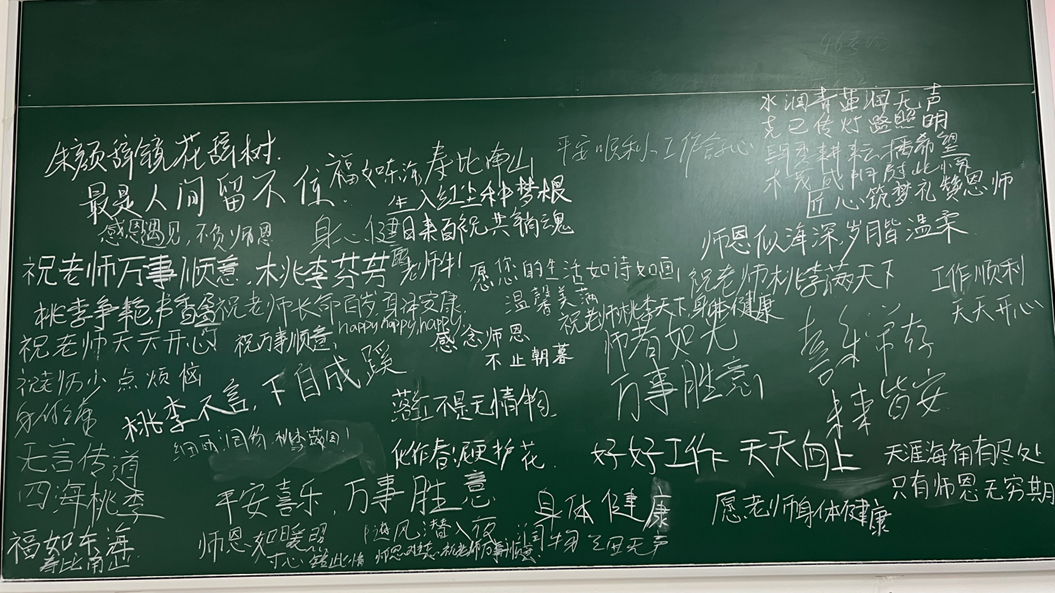 朱颜辞镜花辞树.
最是人间留不住.
福如东海寿比南山
平安顺利、工作舒心
水润青苗细无声
克己传灯路照明
朝来耕耘播希望
匠心筑梦礼赞恩师
生入红尘种梦根
目来百祝共销魂
感恩遇见,不负师恩
身心健
师恩似海深岁月皆温柔
祝老师万事顺意,桃李芬芳
老师牛!
愿您的生活如诗如画
温馨美满
祝老师桃李满天下
工作顺利
天天开心
桃李争艳,书香
祝老师长命百岁,身体安康,
happy,happy,happy,
祝老师桃李天下,身体健康
祝老师天天开心
祝万事顺意.
感念师恩
不止朝暮
师者如光
万事胜意!
喜乐常存
未来皆安
祝老师少点烦恼
桃李不言,下自成蹊
落红不是无情物.
化作春泥更护花.
细雨润物 桃李满园!
好好工作 天天向上
天涯海角有尽处
只有师恩无穷期
无言传道
四海桃李
平安喜乐,万事胜意
身体健康
愿老师身体健康
福如东海
寿比南山
师恩如暖照
寸心 此情
随风潜入夜
润物细无声